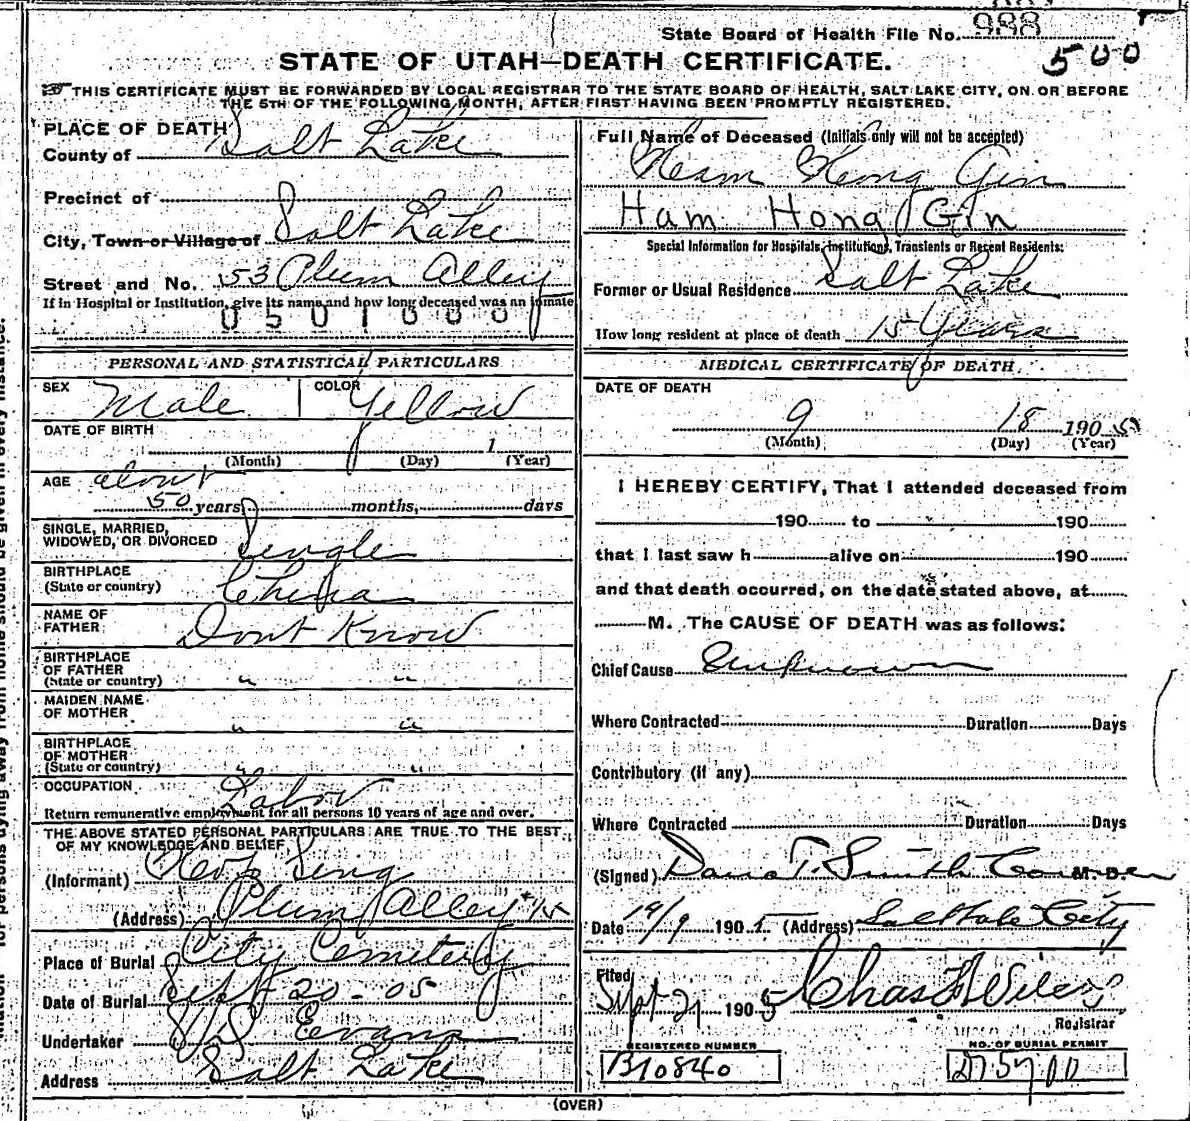 State Board of Health File No. 988
500
STATE OF UTAH—DEATH CERTIFICATE.
THIS CERTIFICATE MUST BE FORWARDED BY LOCAL REGISTRAR TO THE STATE BOARD OF HEALTH, SALT LAKE CITY, ON OR BEFORE
THE 5TH OF THE FOLLOWING MONTH, AFTER FIRST HAVING BEEN PROMPTLY REGISTERED.
PLACE OF DEATH
County of Salt Lake
Precinct of
City, Town or Village of Salt Lake
Street and No. 53 Plum Alley
If in Hospital or Institution, give its name and how long deceased was an inmate
0501000
PERSONAL AND STATISTICAL PARTICULARS
SEX Male COLOR Yellow
DATE OF BIRTH
1
(Month) (Day) (Year)
AGE about
50 years, months, days
SINGLE, MARRIED,
WIDOWED, OR DIVORCED Single
BIRTHPLACE
(State or country) China
NAME OF
FATHER Dont Know
BIRTHPLACE
OF FATHER
(State or country) " "
MAIDEN NAME
OF MOTHER " "
BIRTHPLACE
OF MOTHER
(State or country) " "
OCCUPATION Labor
Return remunerative employment for all persons 10 years of age and over.
THE ABOVE STATED PERSONAL PARTICULARS ARE TRUE TO THE BEST
OF MY KNOWLEDGE AND BELIEF
(Informant) Sing
(Address) Plum Alley
Place of Burial City Cemetery
Date of Burial Sept 20-05
Undertaker Evans
Address Salt Lake
Full Name of Deceased (Initials only will not be accepted)
Hong Gin
Ham Hong Gin
Special Information for Hospitals, Institutions, Transients or Recent Residents:
Former or Usual Residence Salt Lake
How long resident at place of death 15 Years
MEDICAL CERTIFICATE OF DEATH
DATE OF DEATH
9 18 1905
(Month) (Day) (Year)
I HEREBY CERTIFY, That I attended deceased from
190 to 190
that I last saw h alive on 190
and that death occurred, on the date stated above, at
M. The CAUSE OF DEATH was as follows:
Chief Cause Unknown
Where Contracted Duration Days
Contributory (if any)
Where Contracted Duration Days
(Signed) Dana T. Smith Coroner M. D.
Date 19/9 1905 (Address) Salt Lake City
Filed
Sept 21 1905 Chas
Registrar
REGISTERED NUMBER NO. OF BURIAL PERMIT
B10840 D5700
(OVER)